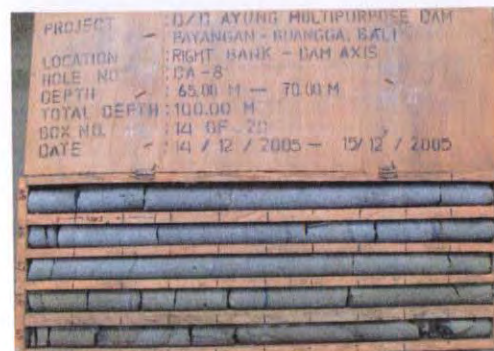 PROJECT : D/D AYUNG MULTIPURPOSE DAM
PAYANGAN - BUANGGA, BALI
LOCATION : RIGHT BANK - DAM AXIS
HOLE NO. : DA - 8
DEPTH : 65.00 M — 70.00 M
TOTAL DEPTH : 100.00 M
BOX NO. : 14 OF 20
DATE : 14 / 12 / 2005 — 15 / 12 / 2005